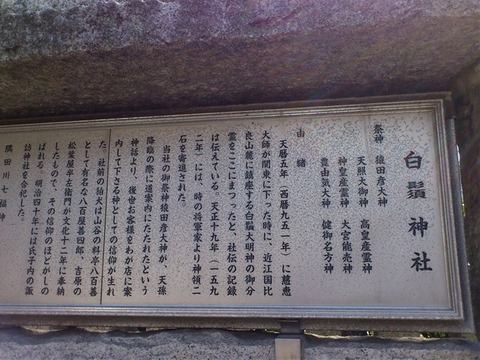 白鬚神社
祭神　猿田彦大神
天照大御神　高皇産霊神
神皇産霊神　大宮能売神
豊由気大神　健御名方神
由緒
天暦五年（西暦九五一年）に慈恵
大師が関東に下った時に、近江国比
良山麓に鎮座する白鬚大明神の御分
霊をここにまつったと、社伝の記録
は伝えている。天正十九年（一五九
二年）には、時の将軍家より神領二
石を寄進された。
当社の御祭神猿田彦大神が、天孫
降臨の際に道案内にたたれたという
神話より、後世お客様をわが店に案
内して下さる神としての信仰が生れ
た。社前の狛犬は山谷の料亭八百善
として有名な八百屋善四郎、吉原の
松葉屋半左衛門が文化十二年に奉納
したもので、その信仰のほどがしの
ばれる。明治四十年には氏子内の諏
訪神社を合祀した。
隅田川七福神